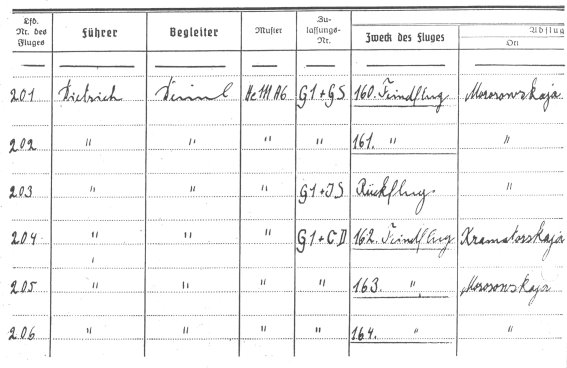 Lfd. Nr. des Fluges Führer Begleiter Muster Zulassungs-Nr. Zweck des Fluges Abflug Ort
201 Dietrich He 111 H6 G1+GS 160. Feindflug Morosowskaja
202 " " " " 161. " "
203 " " " G1+JS Rückflug "
204 " " " G1+CD 162. Feindflug Kramatorskaja
205 " " " " 163. " Morosowskaja
206 " " " " 164. " "